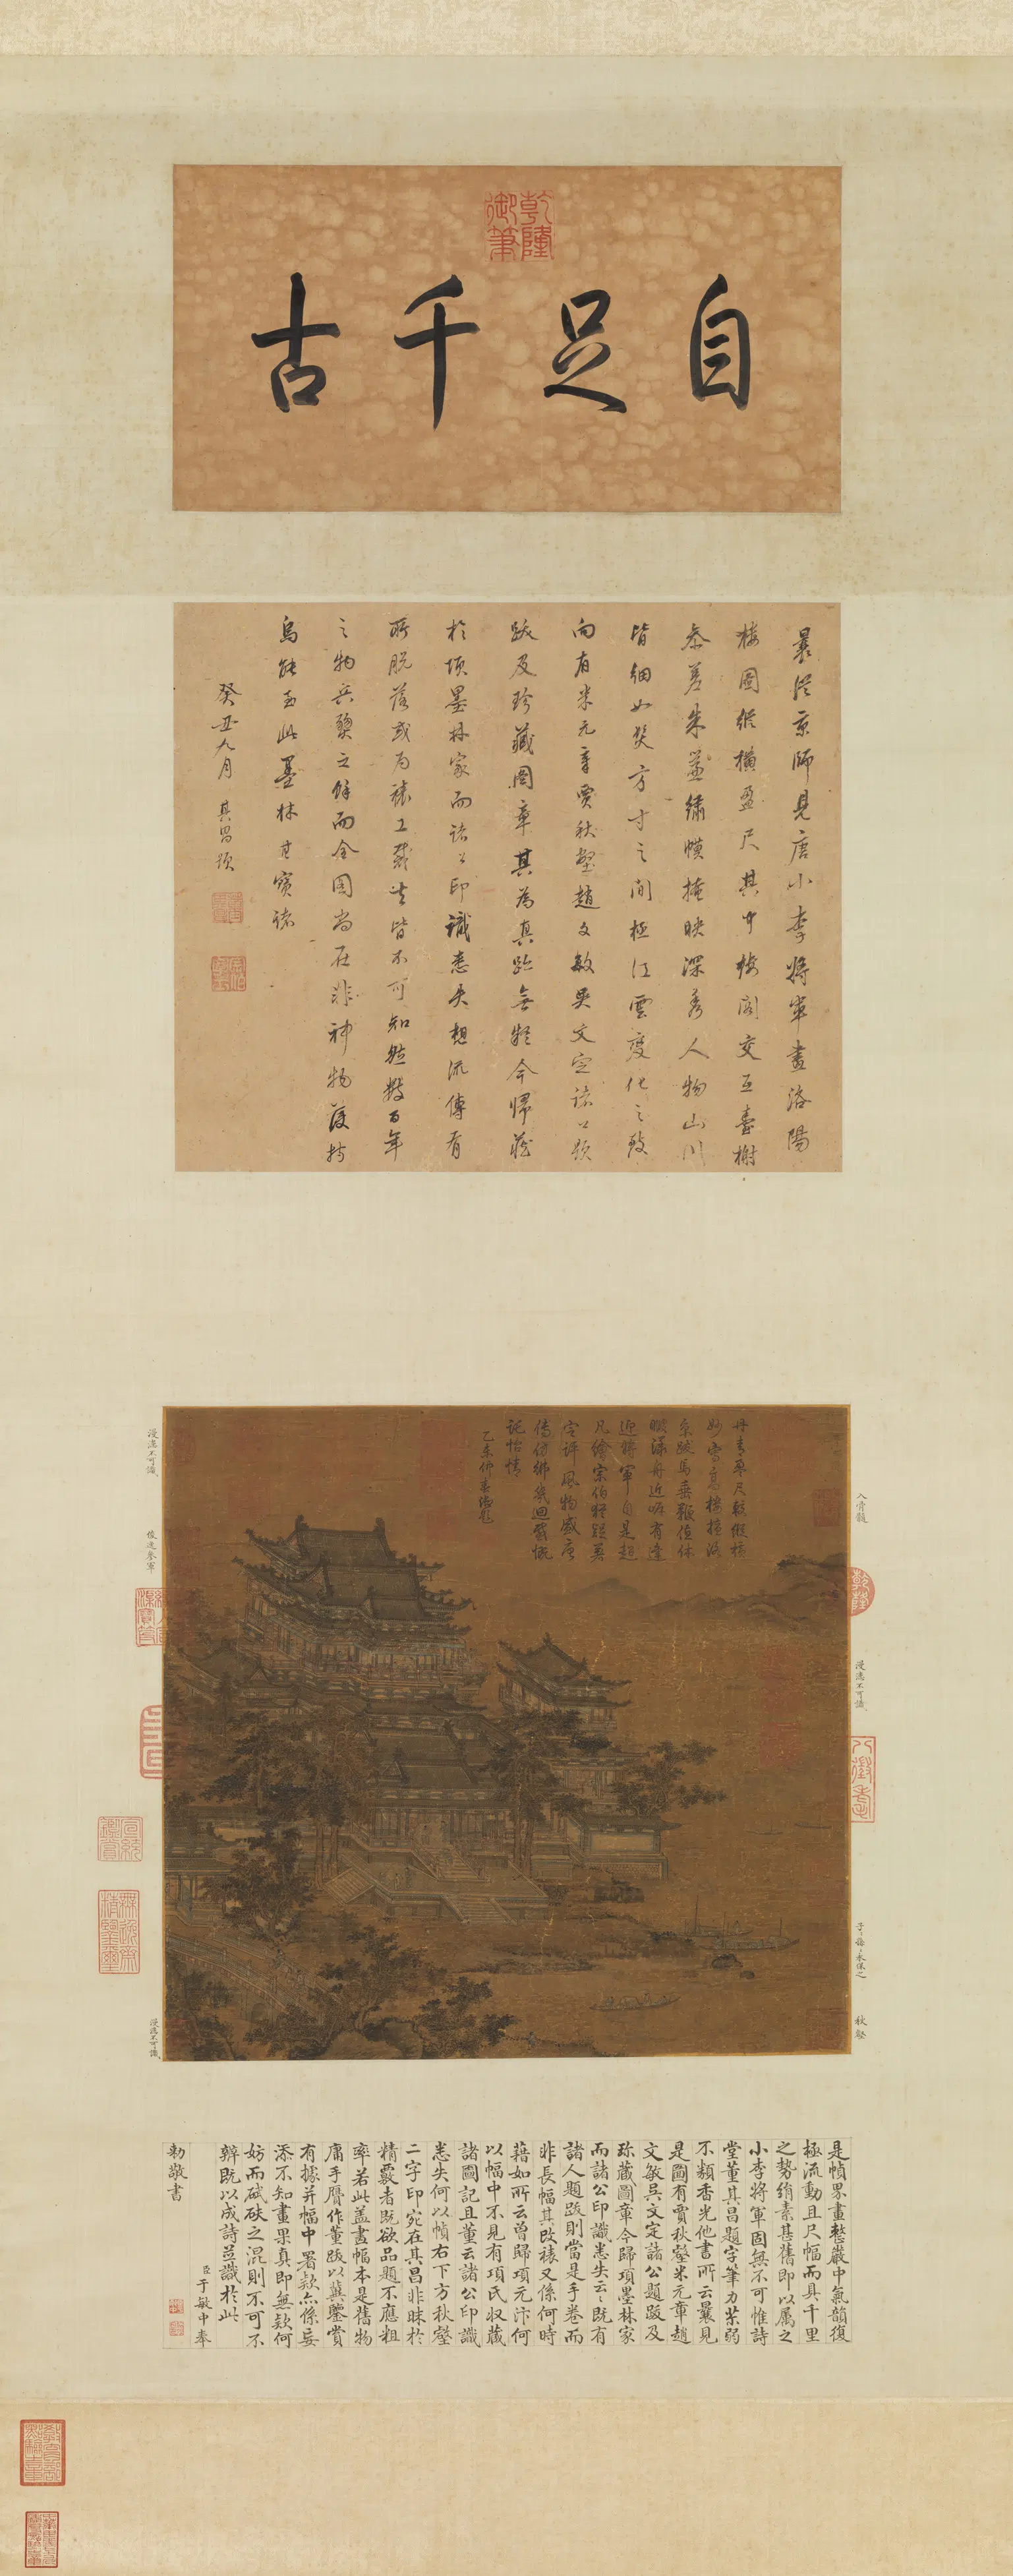 乾隆御筆
自足千古
曩從京師見唐小李將軍畫洛陽
樓圖縱橫盈尺其中樓閣交互臺榭
參差朱簾繡幙掩映深秀人物山川
皆細如髮方寸之間極江雲變化之致
向有米元章賈秋壑趙文敏吳文定諸公題
跋及珍藏圖章其為真跡無疑今歸藏
於項墨林家而諸公印識悉失想流傳有
所脫落或為裱工裁去皆不可知然數百年
之物兵燹之餘而全圖尚在非神物護持
烏能至此墨林其寶諸
癸丑九月 其昌題
丹青
妙寫高樓擅洛
近將軍自是超
凡繪宗伯
定評風物盛唐
傳仿彿幾迴
託怡情
乙未仲春御題
漫漶不可識
入骨髓
漫漶不可識
子孫永保之
秋壑
漫漶不可識
乾隆
八徵耄念
宣統鑒賞
無逸齋精鑒璽
是幀界畫整嚴中氣韻復
極流動且尺幅而具千里
之勢絹素甚舊即以屬之
小李將軍固無不可惟詩
堂董其昌題字筆力茶弱
不類香光他書所云曩見
是圖有賈秋壑米元章趙
文敏吳文定諸公題跋及
珎藏圖章今歸項墨林家
而諸公印識悉失云云既有
諸人題跋則當是手卷而
非長幅其改裱又係何時
藉如所云曾歸項元汴何
以幅中不見有項氏収藏
諸圖記且董云諸公印識
悉失何以幀右下方秋壑
二字印宛在其昌非昧於
精覈者既欲品題不應粗
率若此盖畫幅本是舊物
庸手贋作董跋以冀鑒賞
有據并幅中署款亦係妄
添不知畫果真即無欵何
妨而碔砆之混則不可不
辨既以成詩並識於此
臣于敏中奉
勅敬書